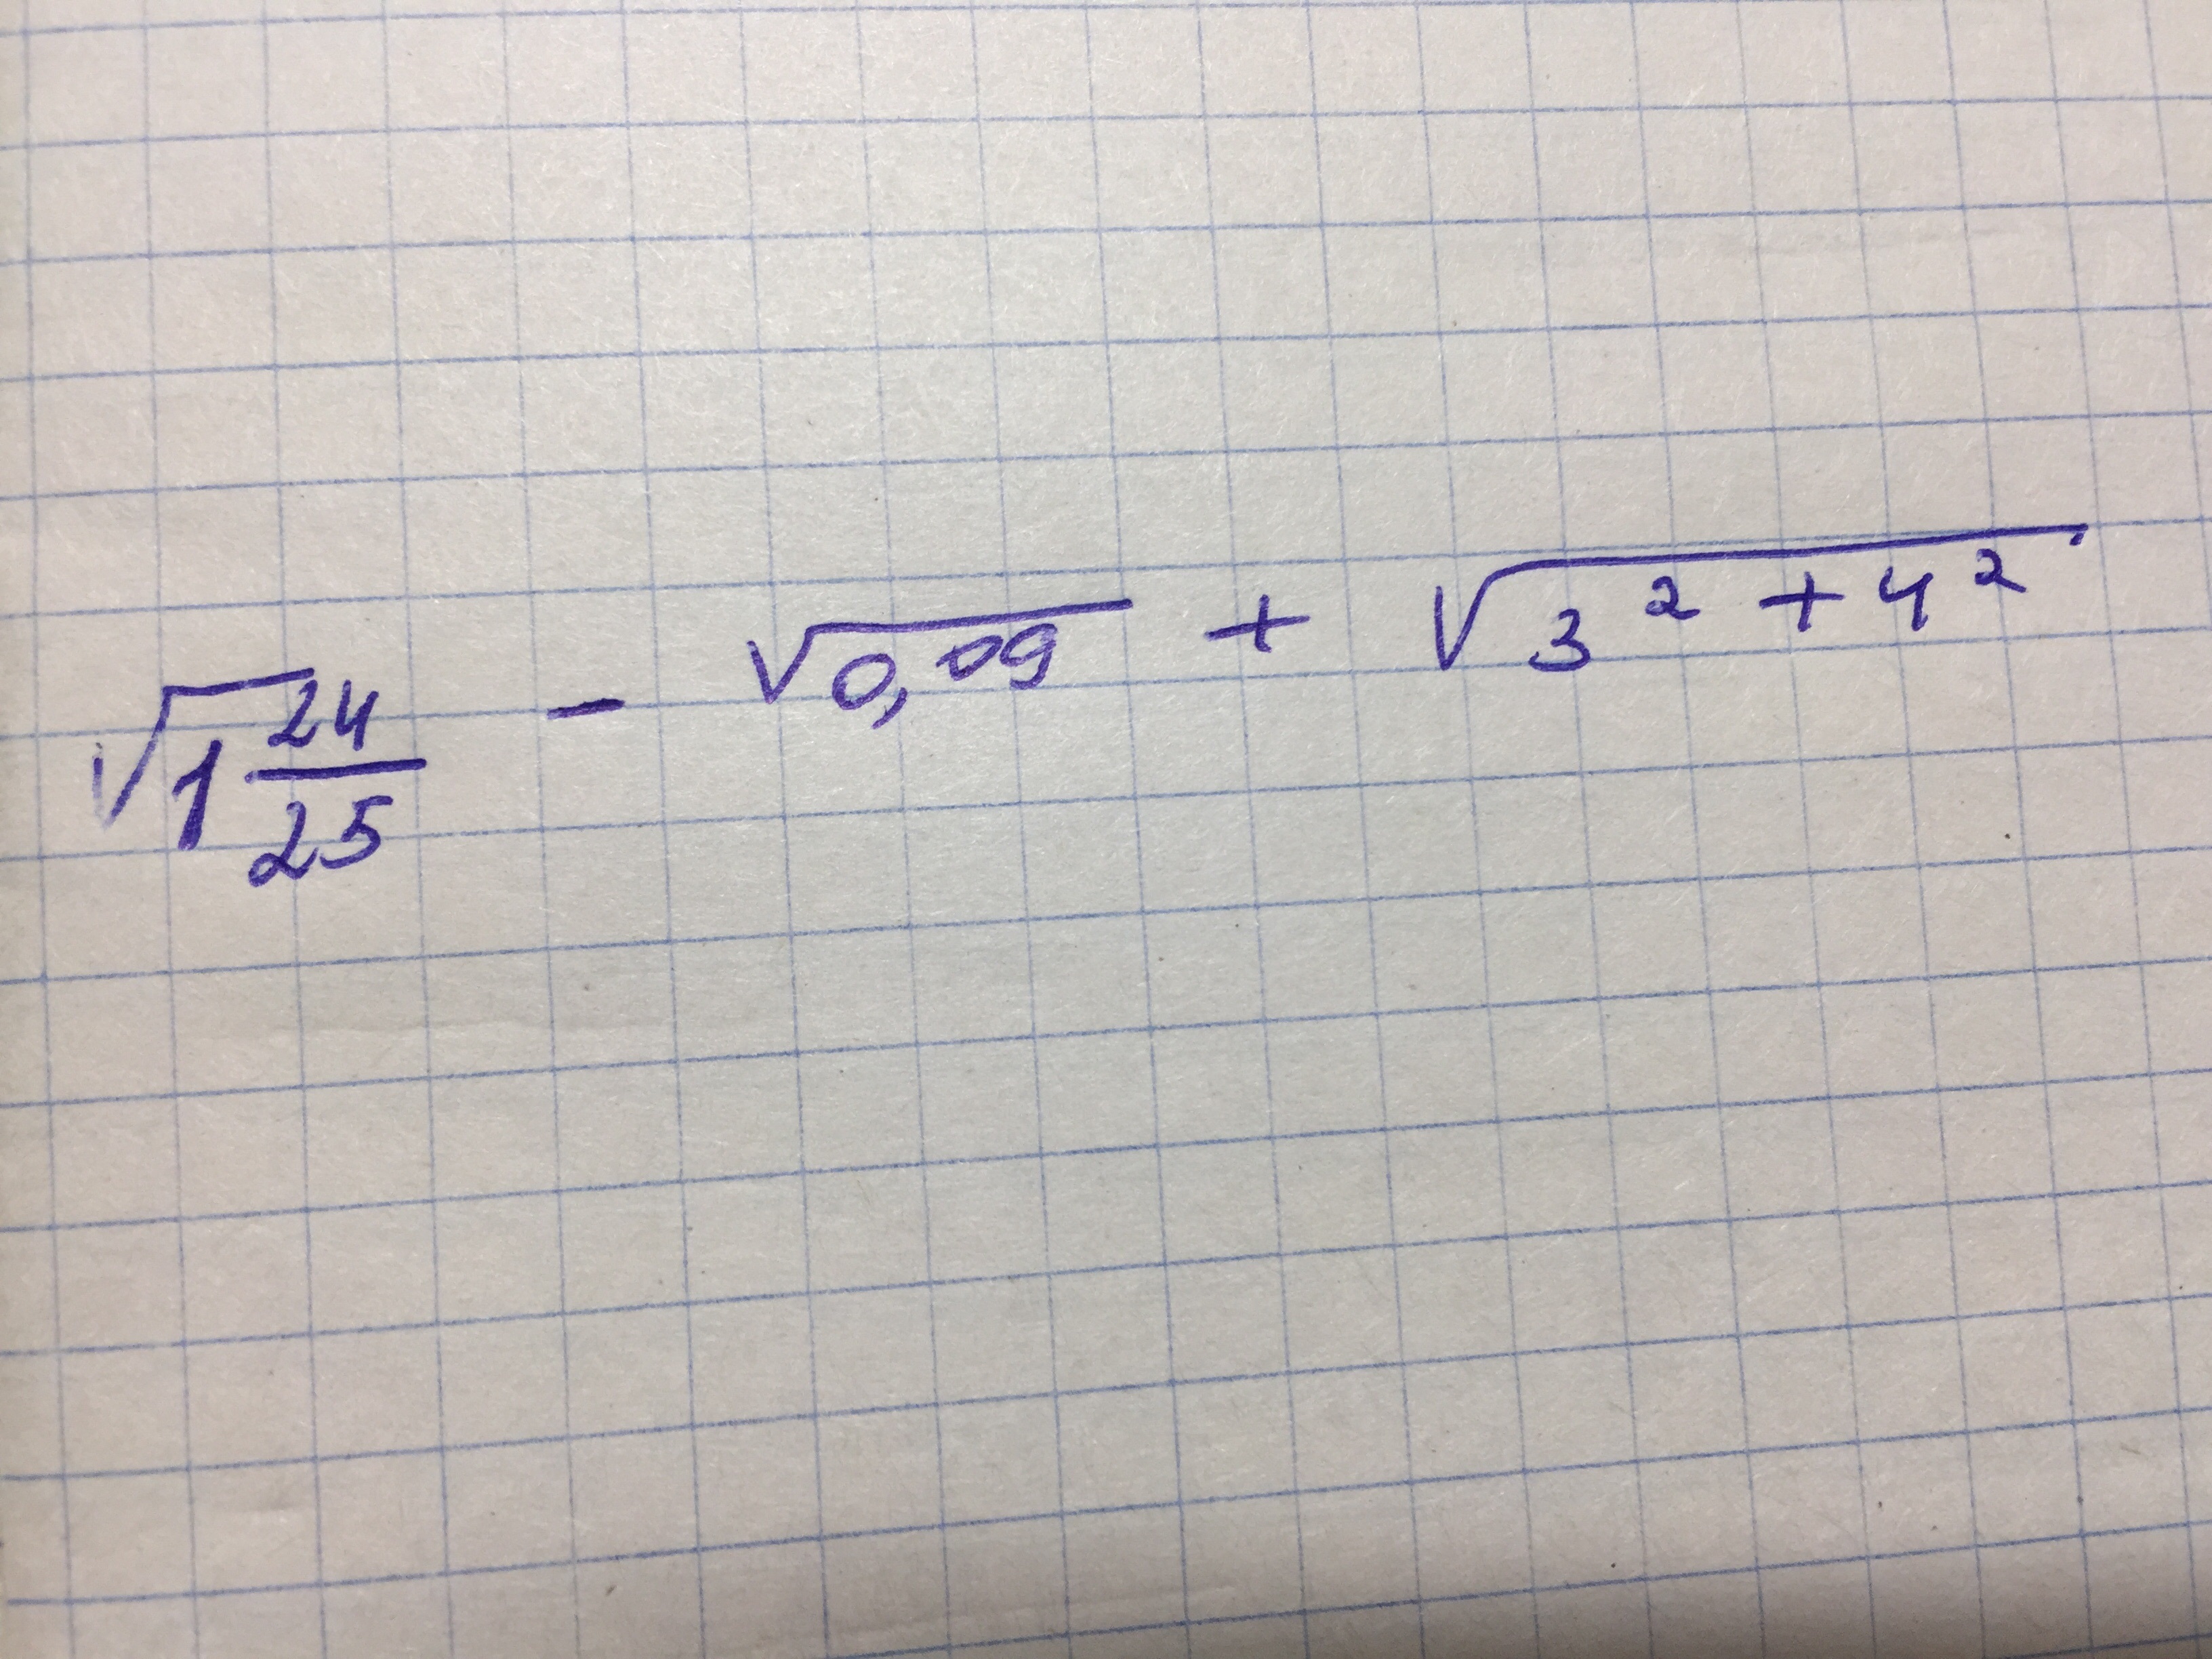 √1 24/25 - √0,09 + √3² + 4²